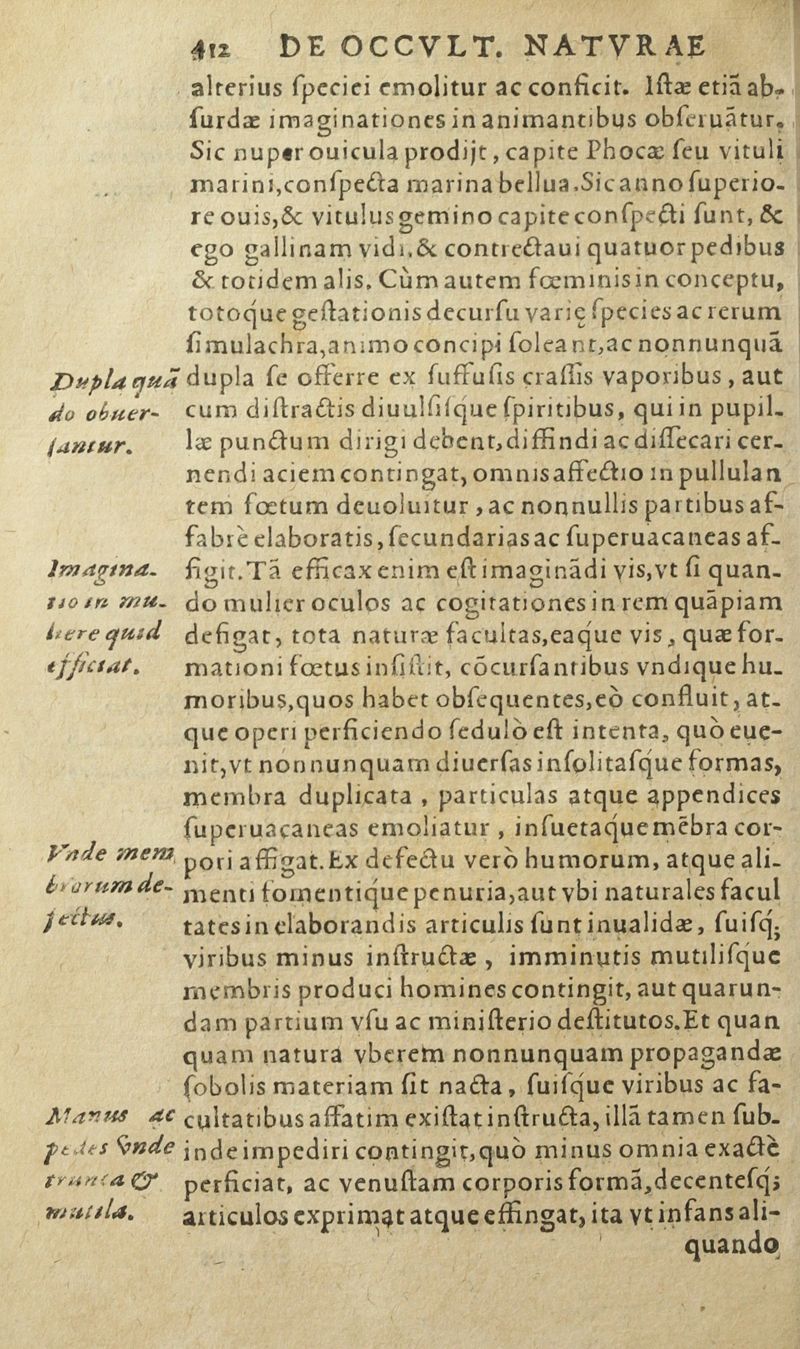 412 DE OCCVLT. NATVRAE
alterius ſpeciei emolitur ac conficit. Iſtæ etiā ab-
ſurdæ imaginationes in animantibus obſeruātur.
Sic nuper ouicula prodijt, capite Phocæ ſeu vituli
marini, conſpecta marina bellua. Sic anno ſuperio-
re ouis, & vitulus gemino capite conſpecti ſunt, &
ego gallinam vidi, & contrectaui quatuor pedibus
& totidem alis. Cùm autem fœminis in conceptu,
totoque geſtationis decurſu varię ſpecies ac rerum
ſimulachra, animo concipi ſoleant, ac nonnunquā
Dupla quā
do obuer-
ſantur.
dupla ſe offerre ex ſuffuſis craſſis vaporibus, aut
cum diſtractis diuulſiſque ſpiritibus, qui in pupil-
læ punctum dirigi debent, diffindi ac diſſecari cer-
nendi aciem contingat, omnis affectio in pullulan
tem fœtum deuoluitur, ac nonnullis partibus af-
fabrè elaboratis, ſecundarias ac ſuperuacaneas af-
Imagina-
tio in mu-
liere quid
efficiat.
figit. Tā efficax enim eſt imaginādi vis, vt ſi quan-
do mulier oculos ac cogitationes in rem quāpiam
defigat, tota naturæ facultas, eaque vis, quæ for-
mationi fœtus inſiſtit, cōcurſantibus vndique hu-
moribus, quos habet obſequentes, eò confluit, at-
que operi perficiendo ſedulò eſt intenta, quò eue-
nit, vt nonnunquam diuerſas inſolitaſque formas,
membra duplicata, particulas atque appendices
ſuperuacaneas emoliatur, inſuetaque mēbra cor-
Vnde mem
brorum de-
fectus.
pori affigat. Ex defectu verò humorum, atque ali-
menti fomentique penuria, aut vbi naturales facul
tates in elaborandis articulis ſunt inualidæ, ſuiſq;
viribus minus inſtructæ, imminutis mutiliſque
membris produci homines contingit, aut quarun-
dam partium vſu ac miniſterio deſtitutos. Et quan
quam natura vberem nonnunquam propagandæ
ſobolis materiam ſit nacta, ſuiſque viribus ac fa-
Manus ac
pedes vnde
trunca &
mutila.
cultatibus affatim exiſtat inſtructa, illā tamen ſub-
inde impediri contingit, quò minus omnia exactè
perficiat, ac venuſtam corporis formā, decenteſq;
articulos exprimat atque effingat, ita vt infans ali-
quando